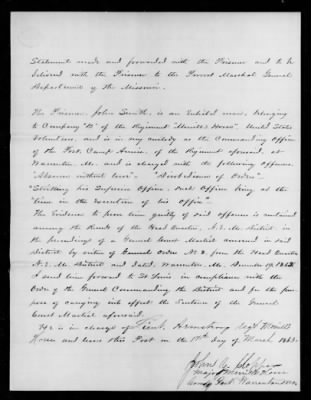 Statement made and forwarded with the Prisoner and to be
delivered with the Prisoner to the Provost Marshal General
Department of the Missouri.
The Prisoner, John Smith, is an Enlisted man, belonging
to Company "B" of the Regiment "Merrill's Horse" United States
Volunteers, and is in my custody as the Commanding Officer
of the Post, Camp of the Regiment aforesaid, at
Warrenton, Mo. and is charged with the following offences.
"Absence without leave". "Disobedience of Orders".
"Striking his Superior Officer, such Officer being at the
time in the Execution of his Office".
The Evidence to prove him guilty of said offences is contained
among the Records of the Head Quarters, N.E. Mo. District, in
the proceedings of a General Court Martial convened in said
district by virtue of General Order No. 2. from the Head Quarters
N.E. Mo. District and dated, Warrenton, Mo. December 19, 1862.
I send him forward to St Louis in compliance with the
Order of the General Commanding the District and for the pur-
pose of carrying into effect the Sentence of the General
Court Martial aforesaid.
He is in charge of Lieut. Armstrong Regt Merrill's
Horse and leave this Post on the day of March 1863.
John
Major Merrill's Horse
Comdg Post. Warrenton Mo.